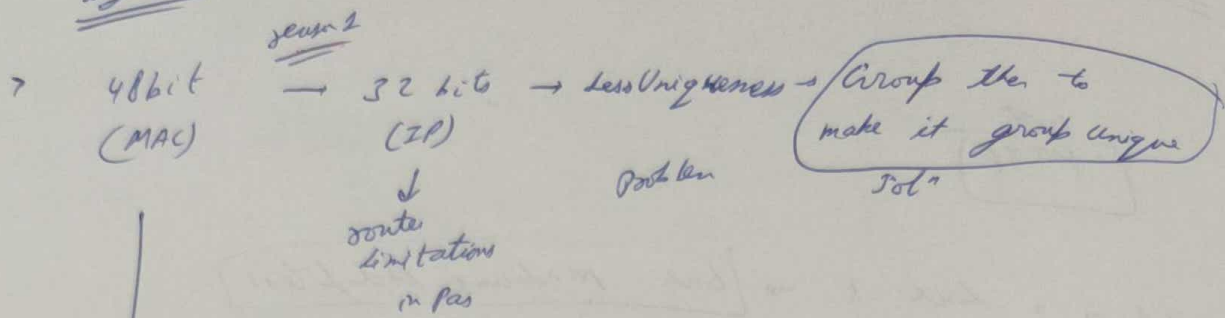 reason 1
> 48bit → 32 bits → Less Uniqueness → Group then to
(MAC) (IP) make it group unique
↓ Problem Solⁿ
route
limitations
in Pas